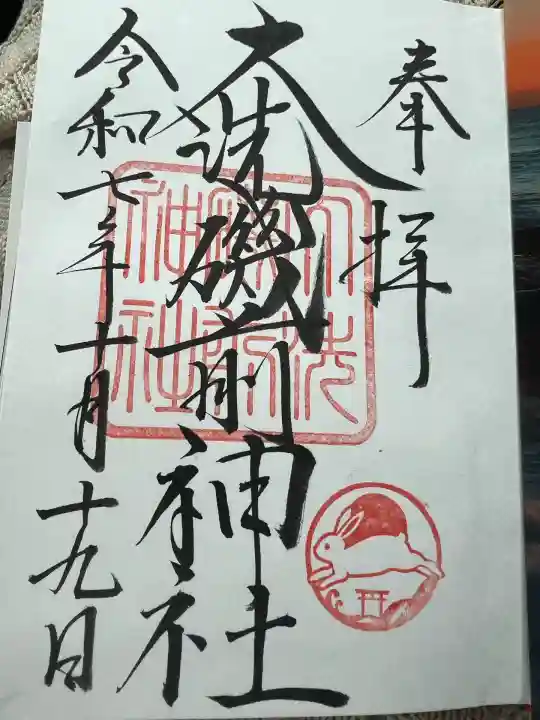 奉拝
大洗磯前神社
令和七年十月十九日
大洗
磯前
神社